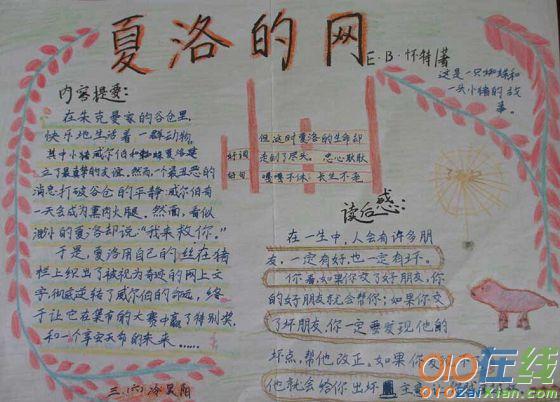 夏洛的网
E·B·怀特著
这是一只蜘蛛和
一头小猪的故
事。
内容提要:
在朱克曼家的谷仓里,
快乐地生活着一群动物。
其中小猪威尔伯和蜘蛛夏洛建
立了最真挚的友谊。然而,一个最丑恶的
消息打破谷仓的平静:威尔伯有
一天会成为熏肉火腿。然而,看似
渺小的夏洛却说:“我来救你。”
于是,夏洛用自己的丝在猪
栏上织出了被视为奇迹的网上文
字,彻底逆转了威尔伯的命运,终
于让它在集市的大赛中赢了特别奖,
和一个享受天命的未来……
三、(六)冷昊阳
但这时夏洛的生命却
好词 走到了尽头。 忠心耿耿
好句 喋喋不休、长生不老
读后感:
在一生中,人会有许多朋
友,一定有好也一定有坏。
你看,如果你交了好朋友,你
的好朋友就会帮你;如果你交
了坏朋友,你一定要发现他的
坏点,帮他改正。如果
他就会给你出坏主意
010在线
OiOZaiXian.Com